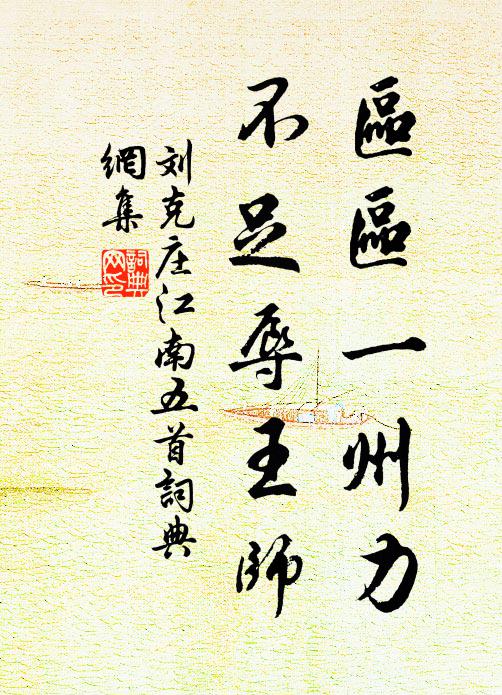 區區一州力
不足辱王師
刘克庄江南五首詞典
網集
詞典
网印